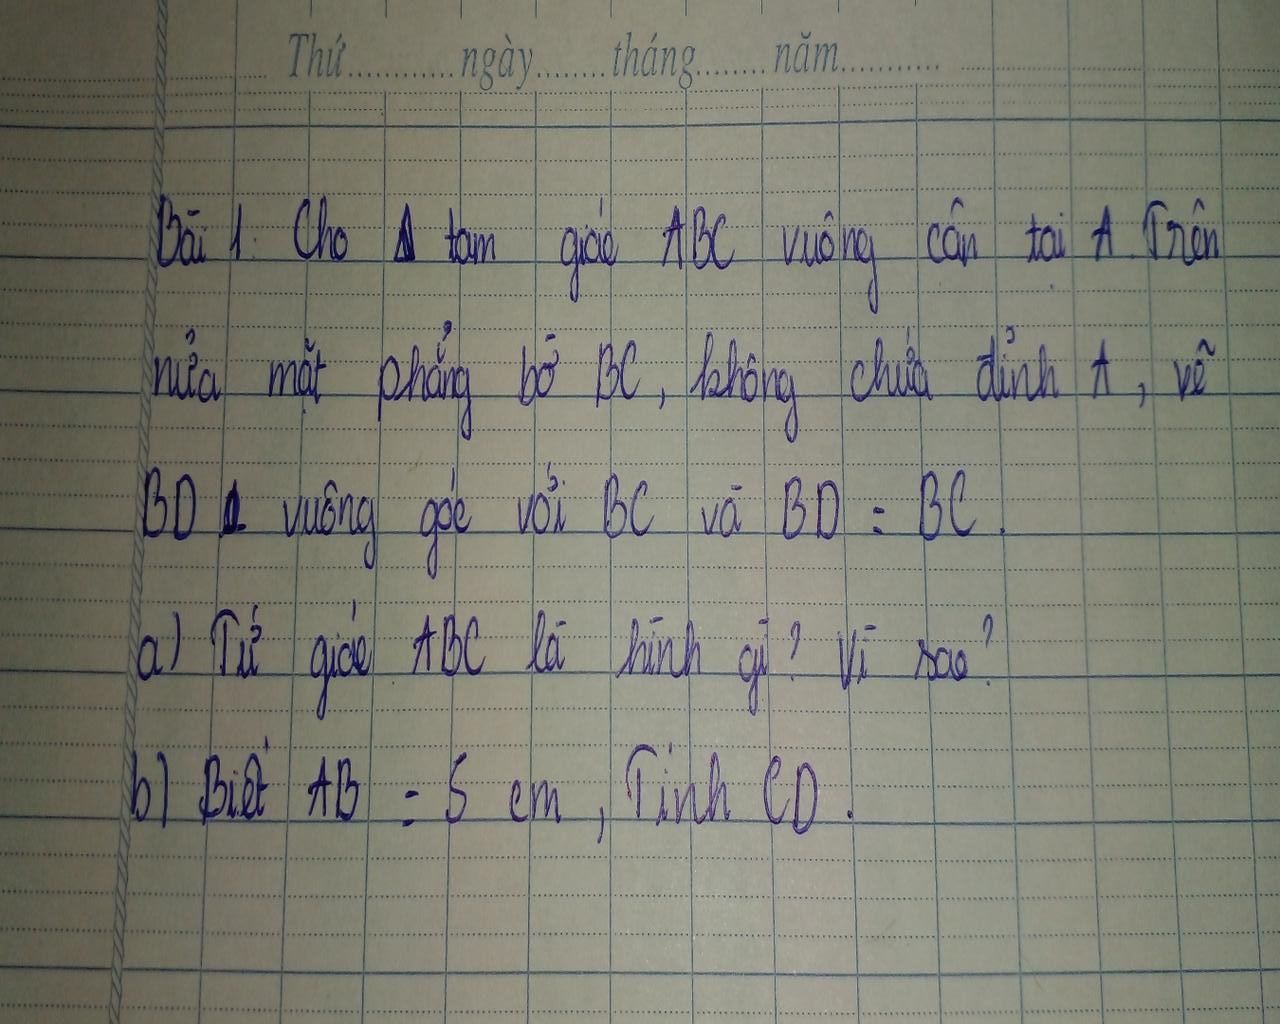 Thứ............ngày........tháng........năm...........
Bài 1. Cho Δ tam giác ABC vuông cân tại A. Trên
nửa mặt phẳng bờ BC, không chứa đỉnh A, vẽ
BD ⊥ vuông góc với BC và BD = BC.
a) Tứ giác ABC là hình gì? Vì sao?
b) Biết AB = 5 cm, Tính CD.